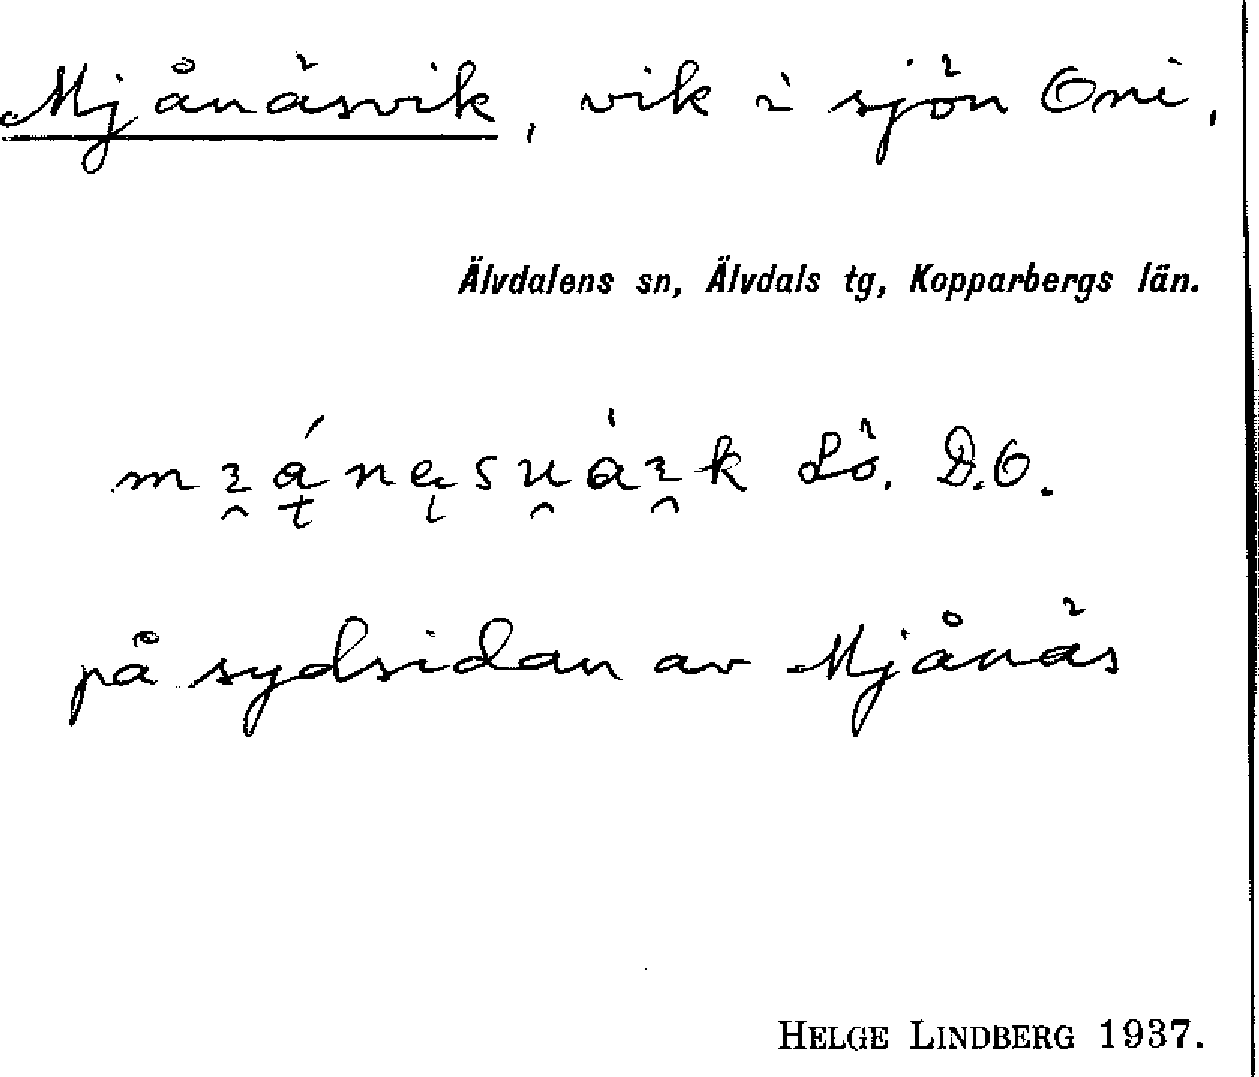 Mjånäsvik, vik i sjön Oni,
Älvdalens sn, Älvdals tg, Kopparbergs län.
Lö. D.O.
på sydsidan av Mjånäs
HELGE LINDBERG 1937.